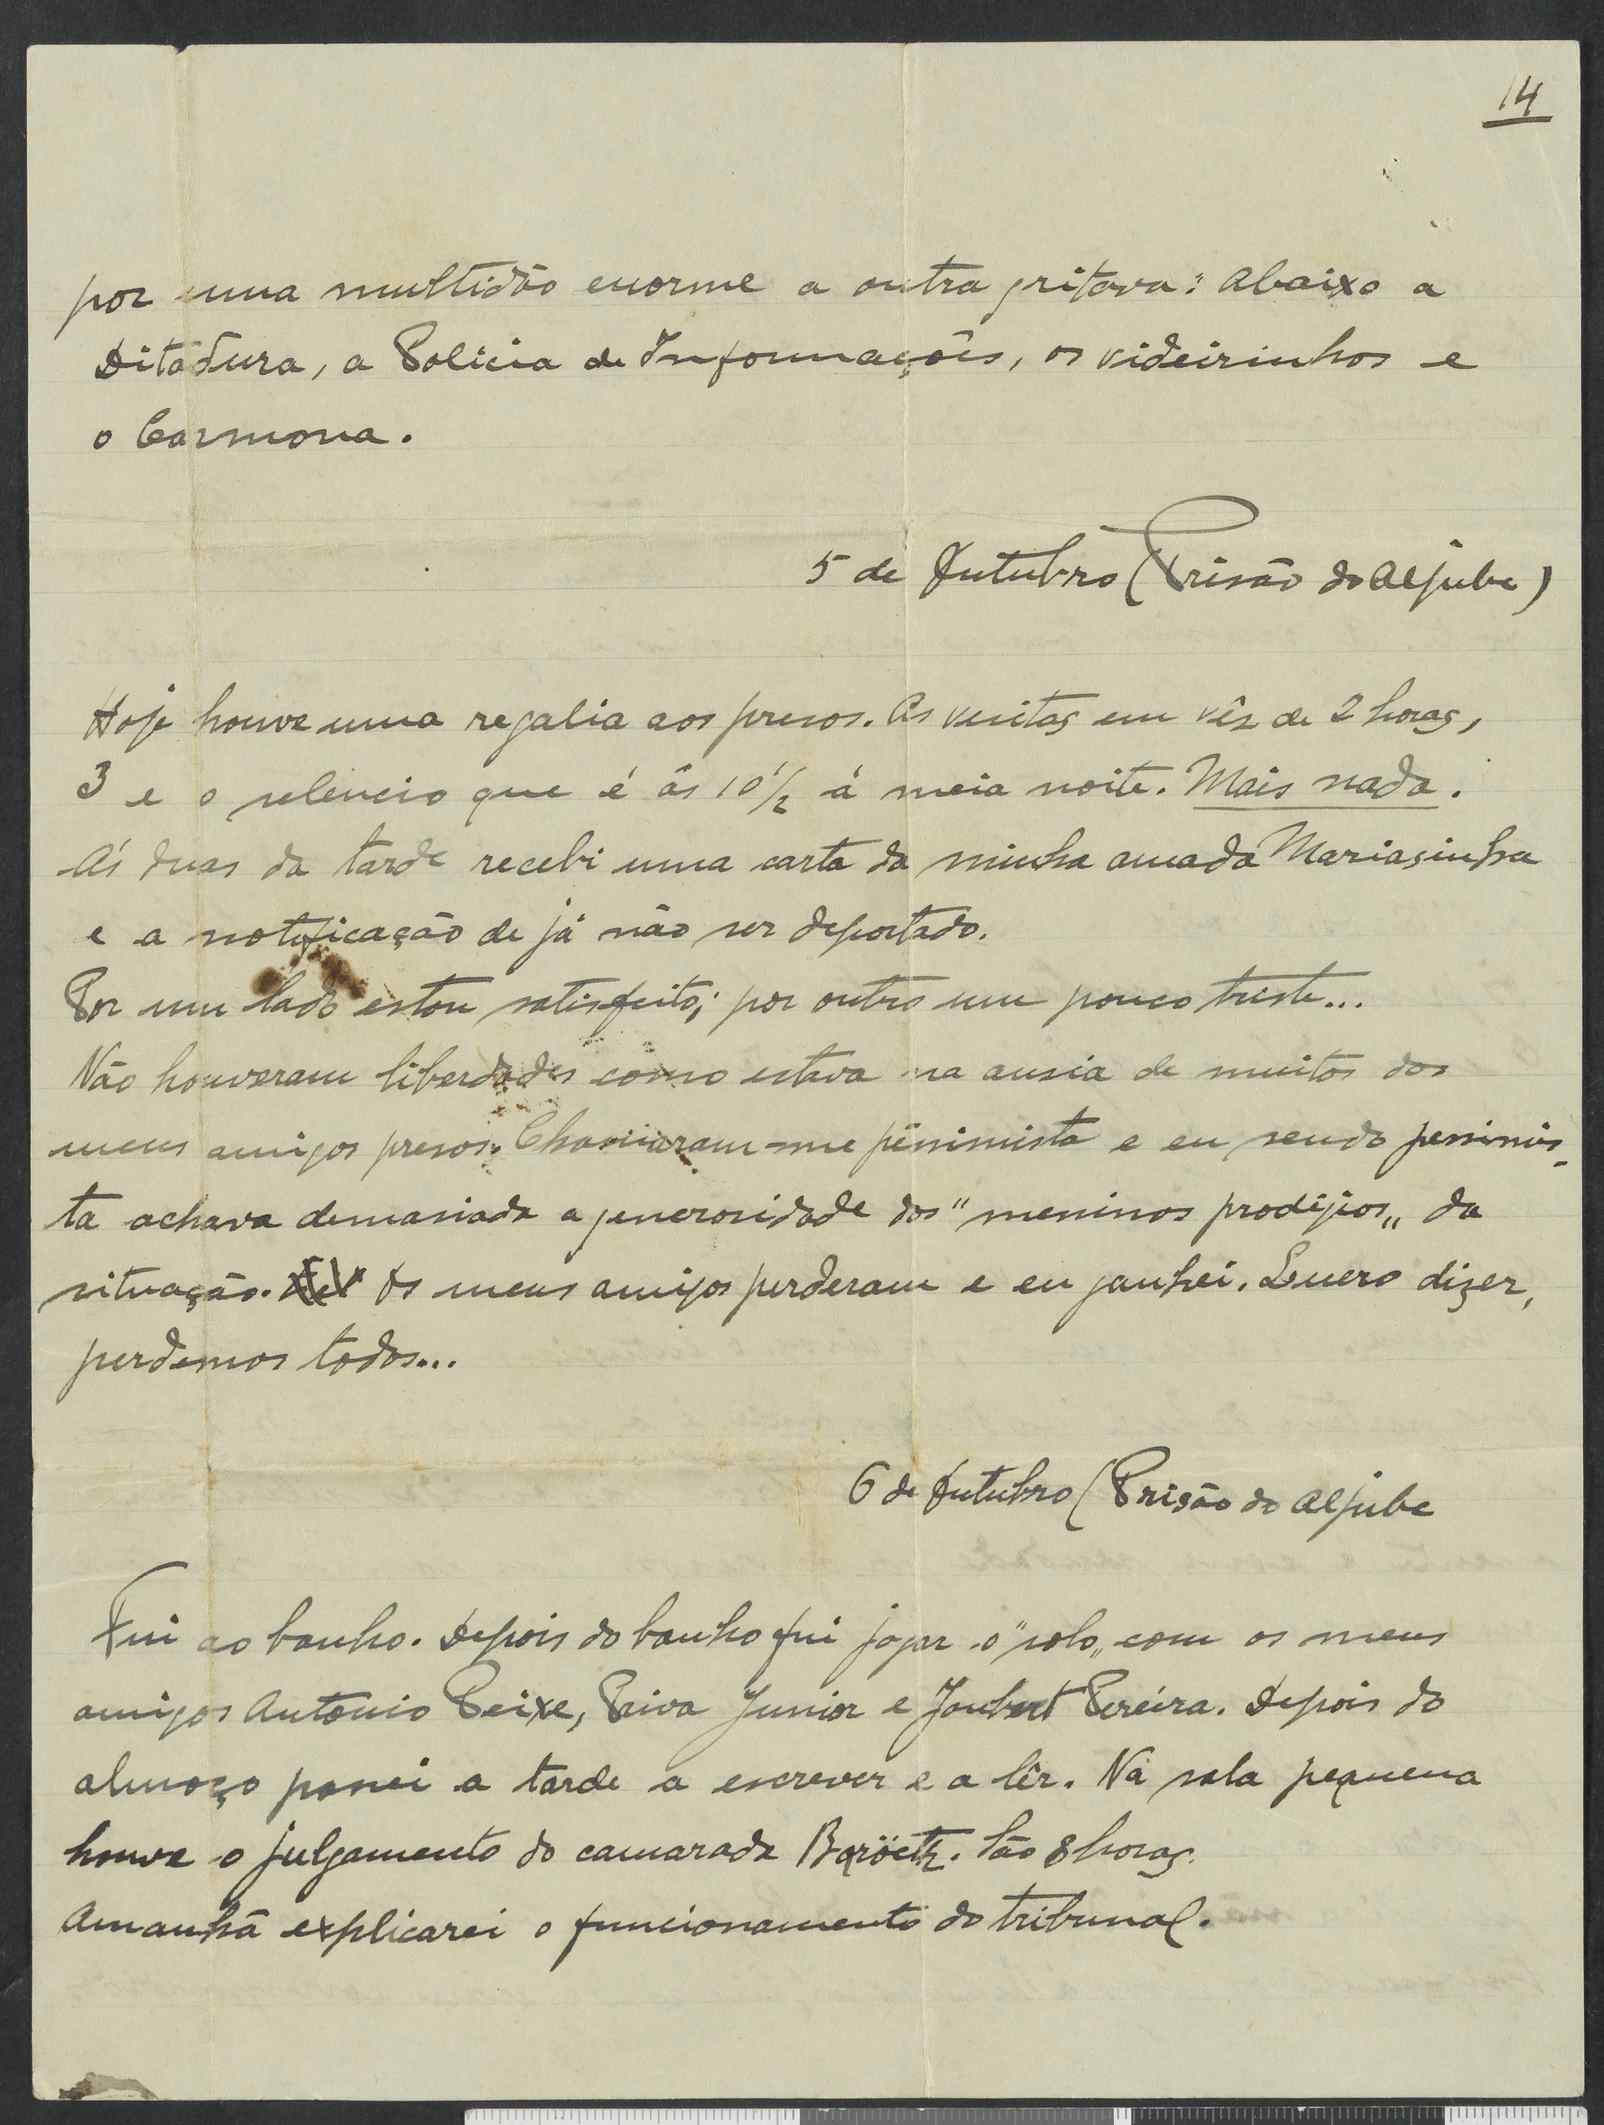 14
por uma multidão enorme a outra gritava: Abaixo a
Ditadura, a Policia de Informações, os videirinhos e
o Carmona.
5 de Outubro (Prisão do Aljube)
Hoje houve uma regalia aos presos. As visitas em vês de 2 horas,
3 e o silencio que é ás 10 1/2 á meia noite. Mais nada.
Ás duas da tarde recebi uma carta da minha amada Mariasinha
e a notificação de já não ser deportado.
Por um lado estou satisfeito; por outro um pouco triste...
Não houveram liberdades como estava na ansia de muitos dos
meus amigos presos. Chamaram-me pessimista e eu sendo pessimis-
ta achava demasiada a generosidade dos "meninos prodigios" da
situação. Os meus amigos perderam e eu ganhei. Quero dizer,
perdemos todos...
6 de Outubro (Prisão do Aljube
Fui ao banho. Depois do banho fui jogar o "solo" com os meus
amigos Antonio Peixe, Paiva Junior e Joubert Pereira. Depois do
almoço passei a tarde a escrever e a lêr. Na sala pequena
houve o julgamento do camarada. São 8 horas.
Amanhã explicarei o funcionamento do tribunal.